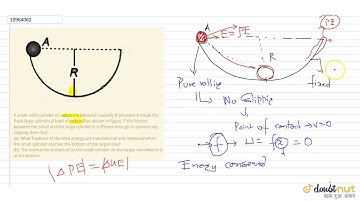 10964062
A
R
A small solid cylinder of radius r is released coaxially from point A inside the
fixed large cylindrical bowl of radius R as shown in figure. If the friction
between the small and the large cylinder is sufficient enough to prevent any
slipping then find.
(a). What fractions of the total energy are translational and rotational when
the small cylinder reaches the bottom of the larger one?
(b). The normal force exerted by the small cylinder on the larger one when it is
at the bottom.
|ΔPE| = |ΔKE|
A
E = PE
PE
R
fixed
Pure rolling
No Slipping
Point of contact → v=0
f
W = f x = 0
Energy conserved
doubtnut